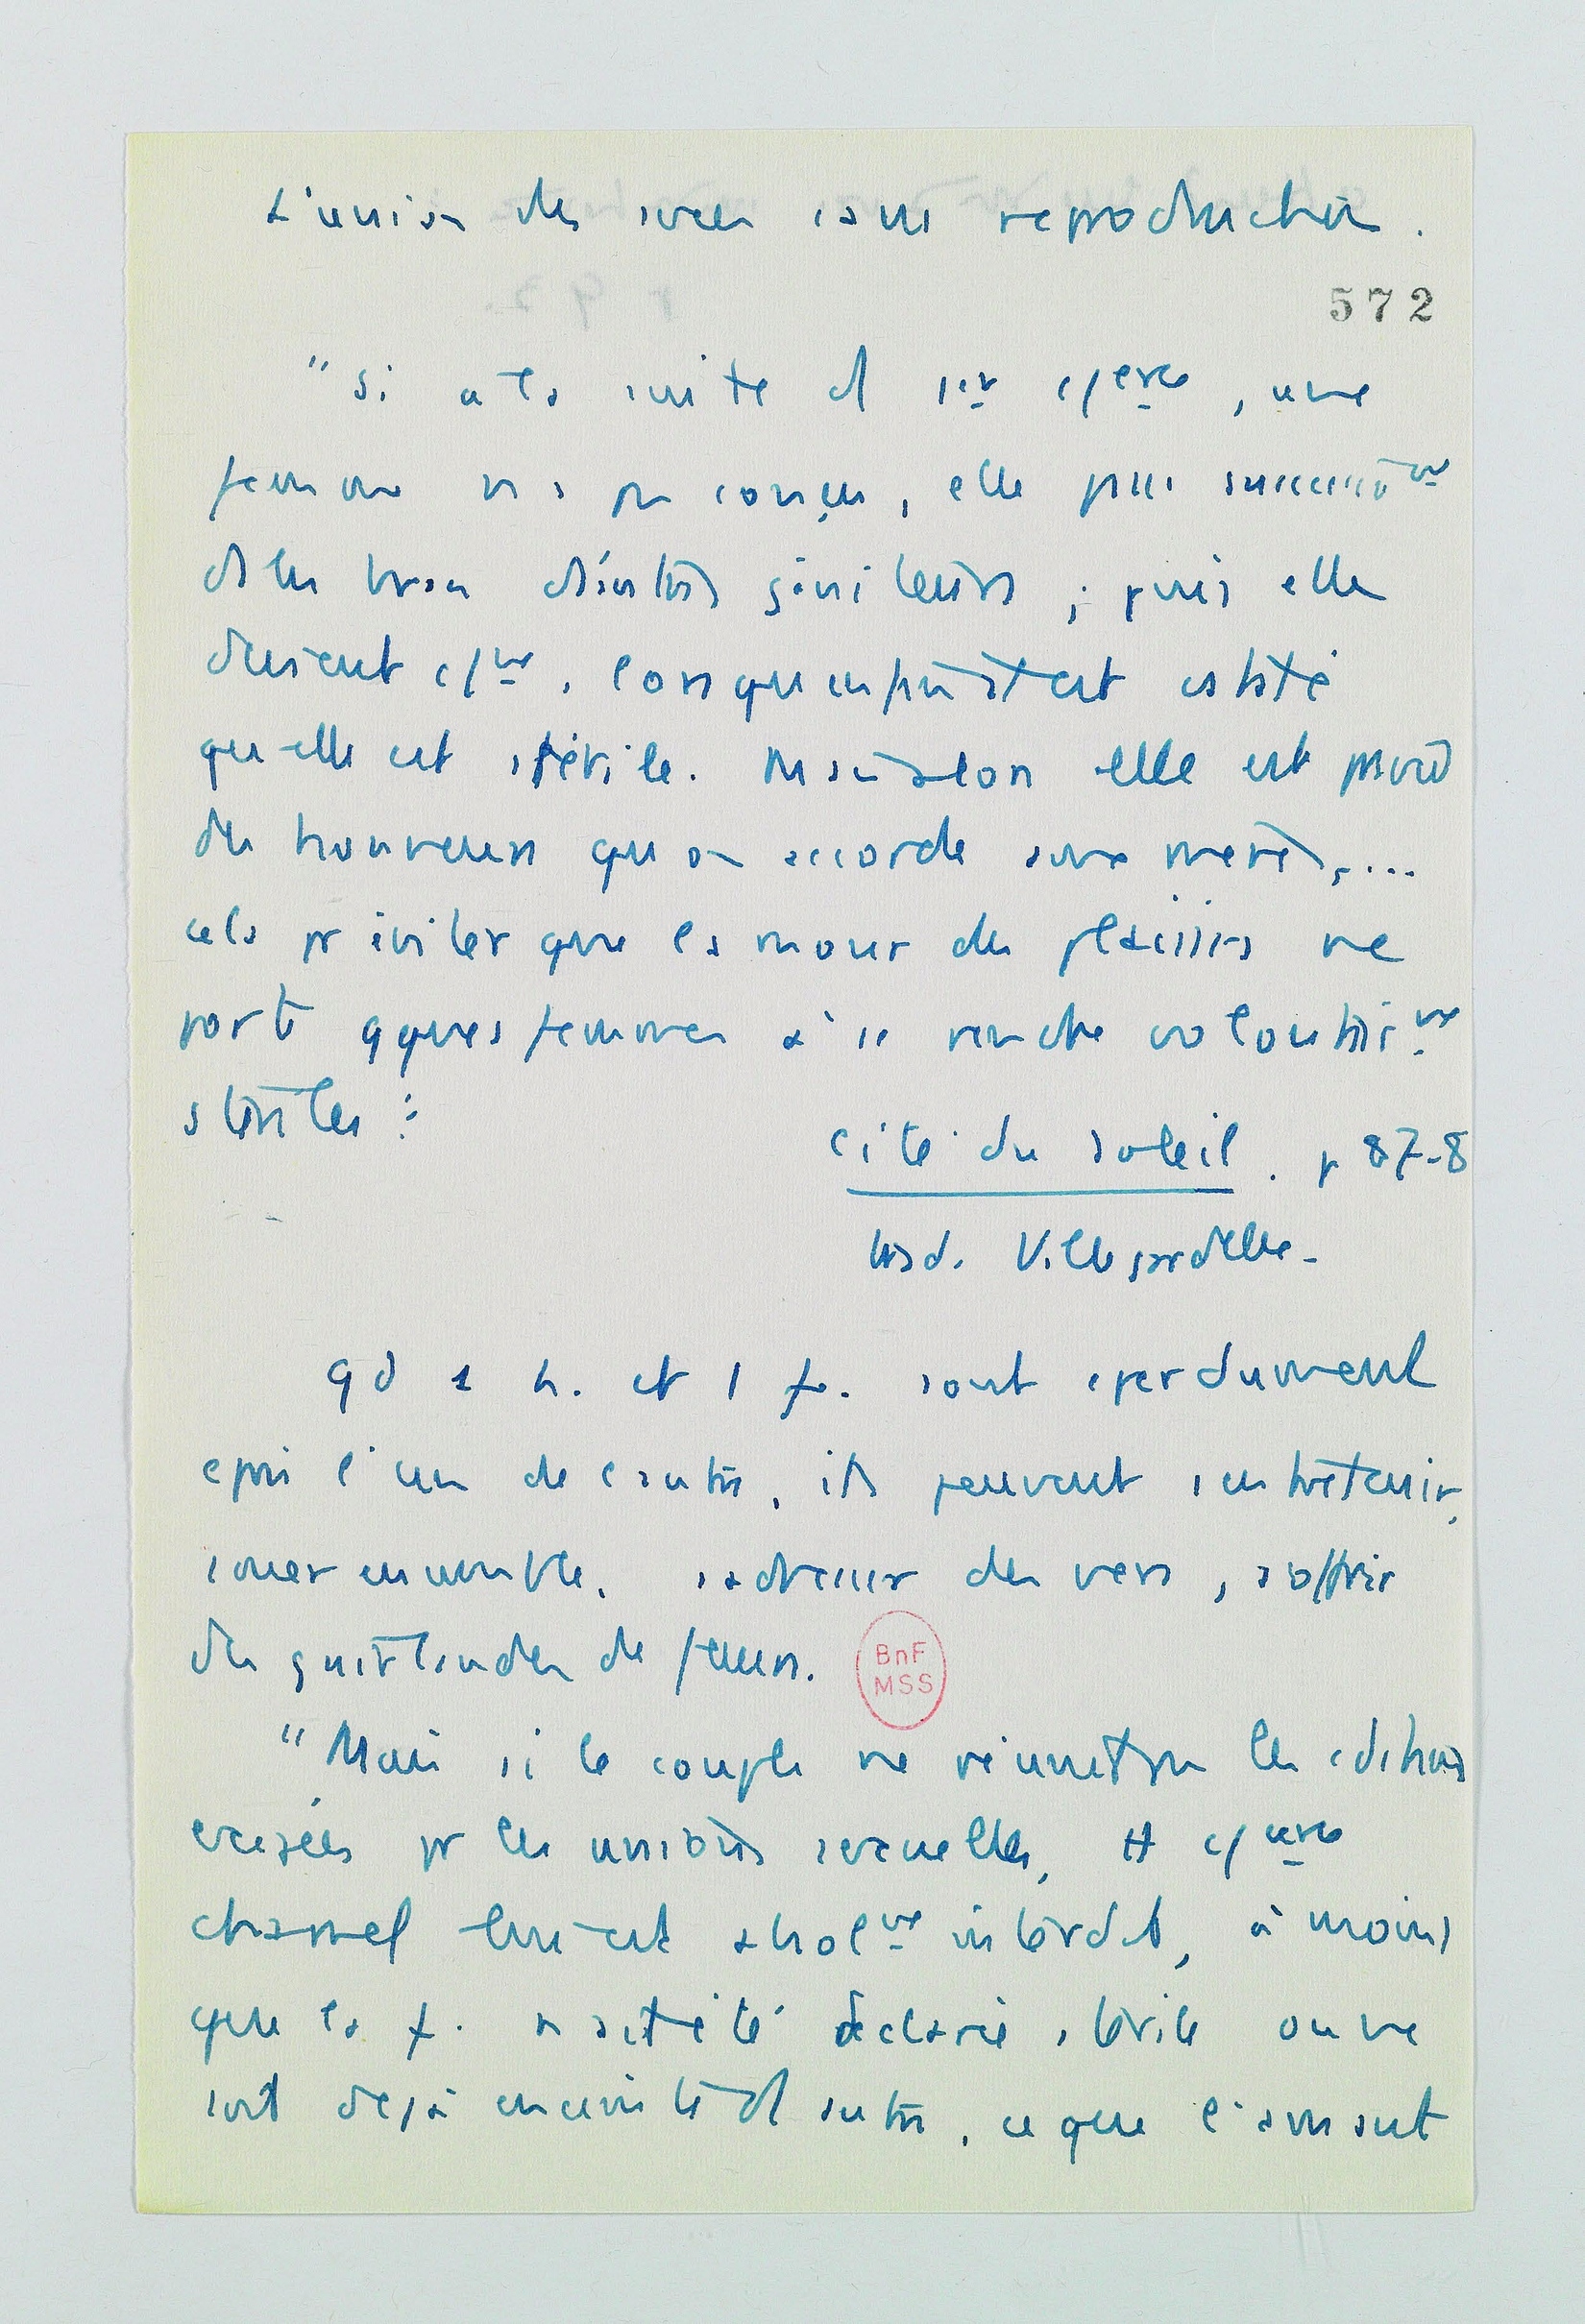 L'union des sexes sans reproduction.
572
"Si à la suite d 1er c/erce, une
femme n'a pas conçu, elle passe successivt
ds les bras d'autres géniteurs ; puis elle
devient c/ne, lorsqu'enfin on a constaté
qu'elle est stérile. Mais alors elle est privée
des honneurs qu'on accorde aux mères,...
cela pr éviter que l'amour des plaisirs ne
porte qques femmes à se rendre volontairt
stériles :
Cité du soleil. p 87-8
trad. Villegardelle.
qd 1 h. et 1 f. sont éperdument
épris l'un de l'autre, ils peuvent s'entretenir,
jouer ensemble, s'adresser des vers, s'offrir
des guirlandes de fleurs.
BnF
MSS
"Mais si le couple ne réunit pas les cditions
exigées pr les unions sexuelles, tt c/erce
charnel leur est absolt interdit, à moins
que la f. n'ait été déclarée stérile ou ne
soit déjà enceinte d'1 autre, ce que l'amant